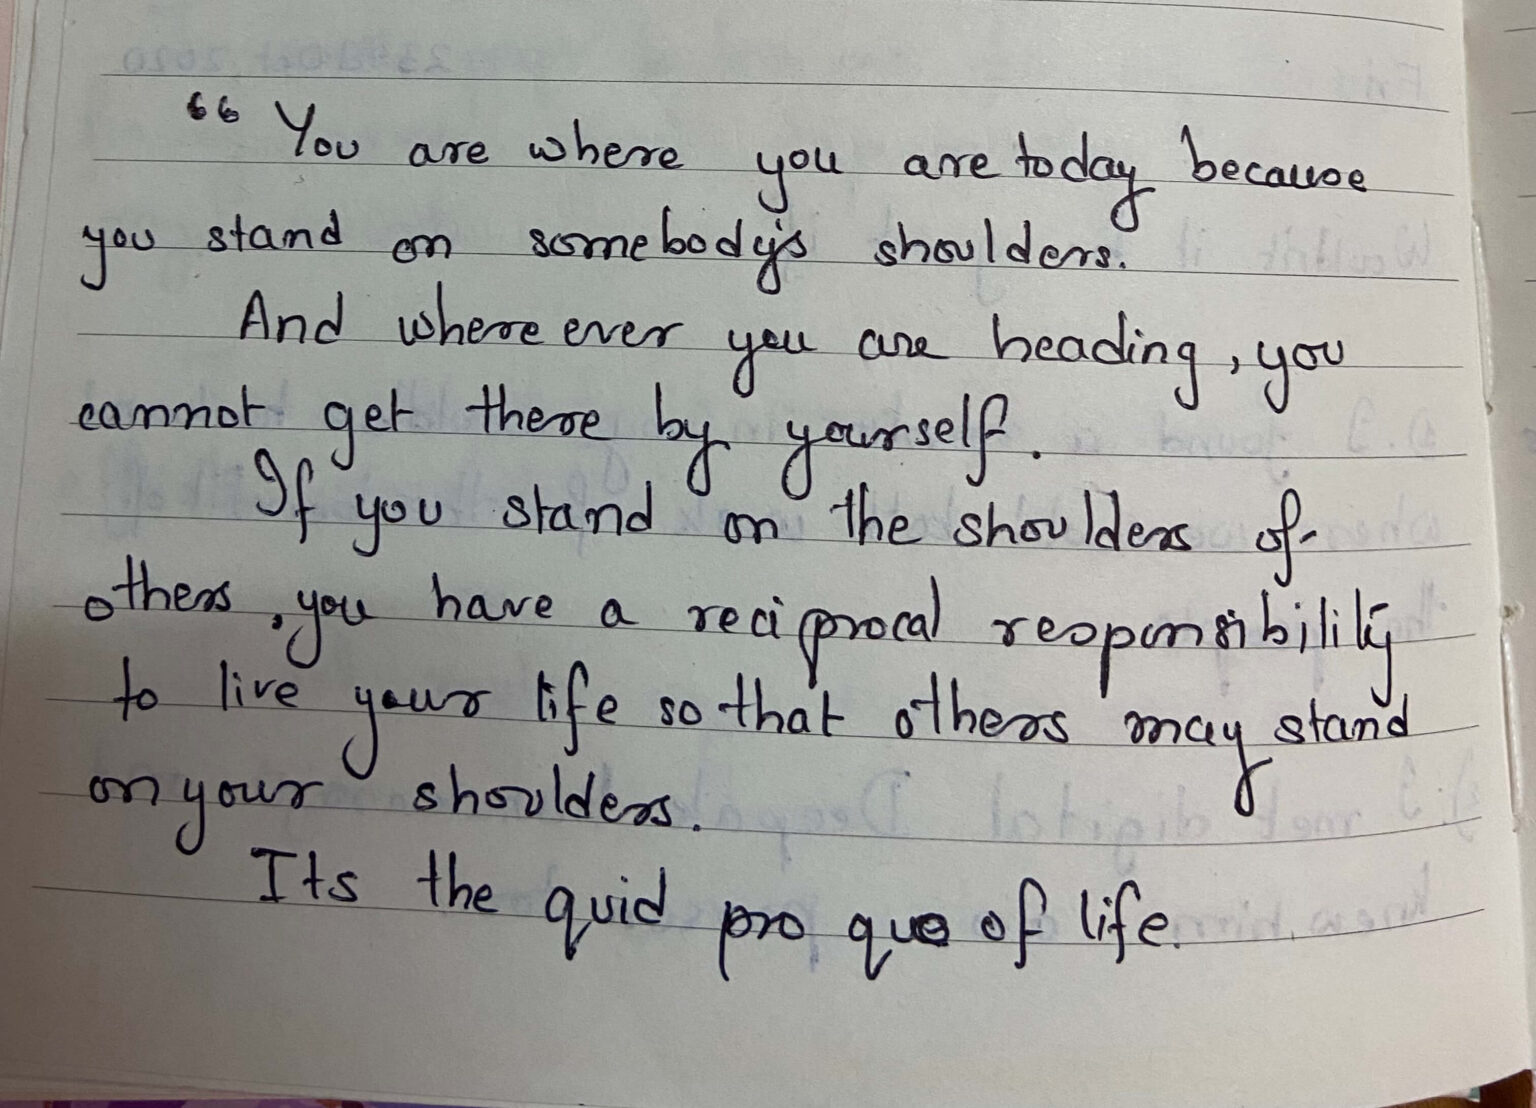 “ You are where you are today because
you stand on somebody's shoulders.
And where ever you are heading, you
cannot get there by yourself.
If you stand on the shoulders of
others, you have a reciprocal responsibility
to live your life so that others may stand
on your shoulders.
Its the quid pro quo of life.